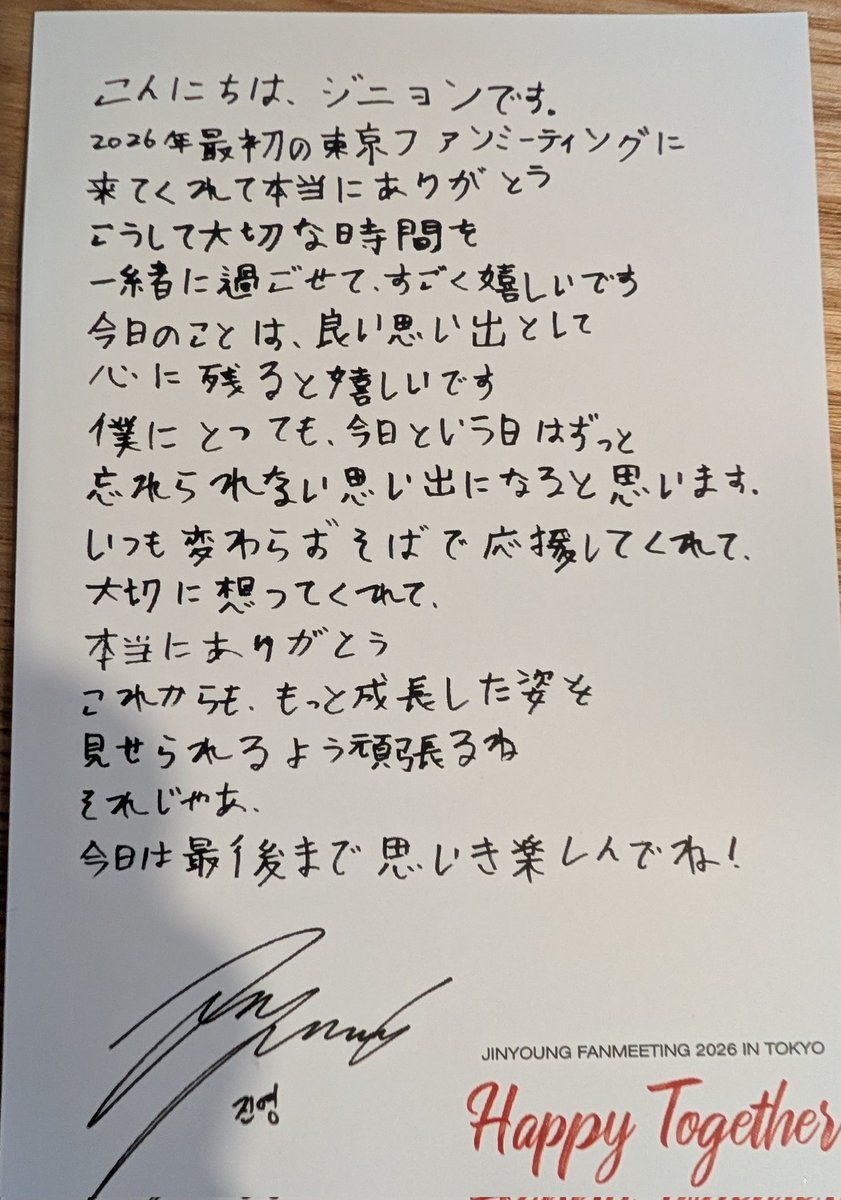 こんにちは、ジニョンです.
2026年最初の東京ファンミーティングに
来てくれて本当にありがとう
こうして大切な時間を
一緒に過ごせて、すごく嬉しいです
今日のことは、良い思い出として
心に残ると嬉しいです
僕にとっても、今日という日はずっと
忘れられない思い出になると思います.
いつも変わらずそばで応援してくれて、
大切に想ってくれて、
本当にありがとう
これからも、もっと成長した姿を
見せられるよう頑張るね
それじゃあ、
今日は最後まで思いき楽しんでね!
진영
JINYOUNG FANMEETING 2026 IN TOKYO
Happy Together